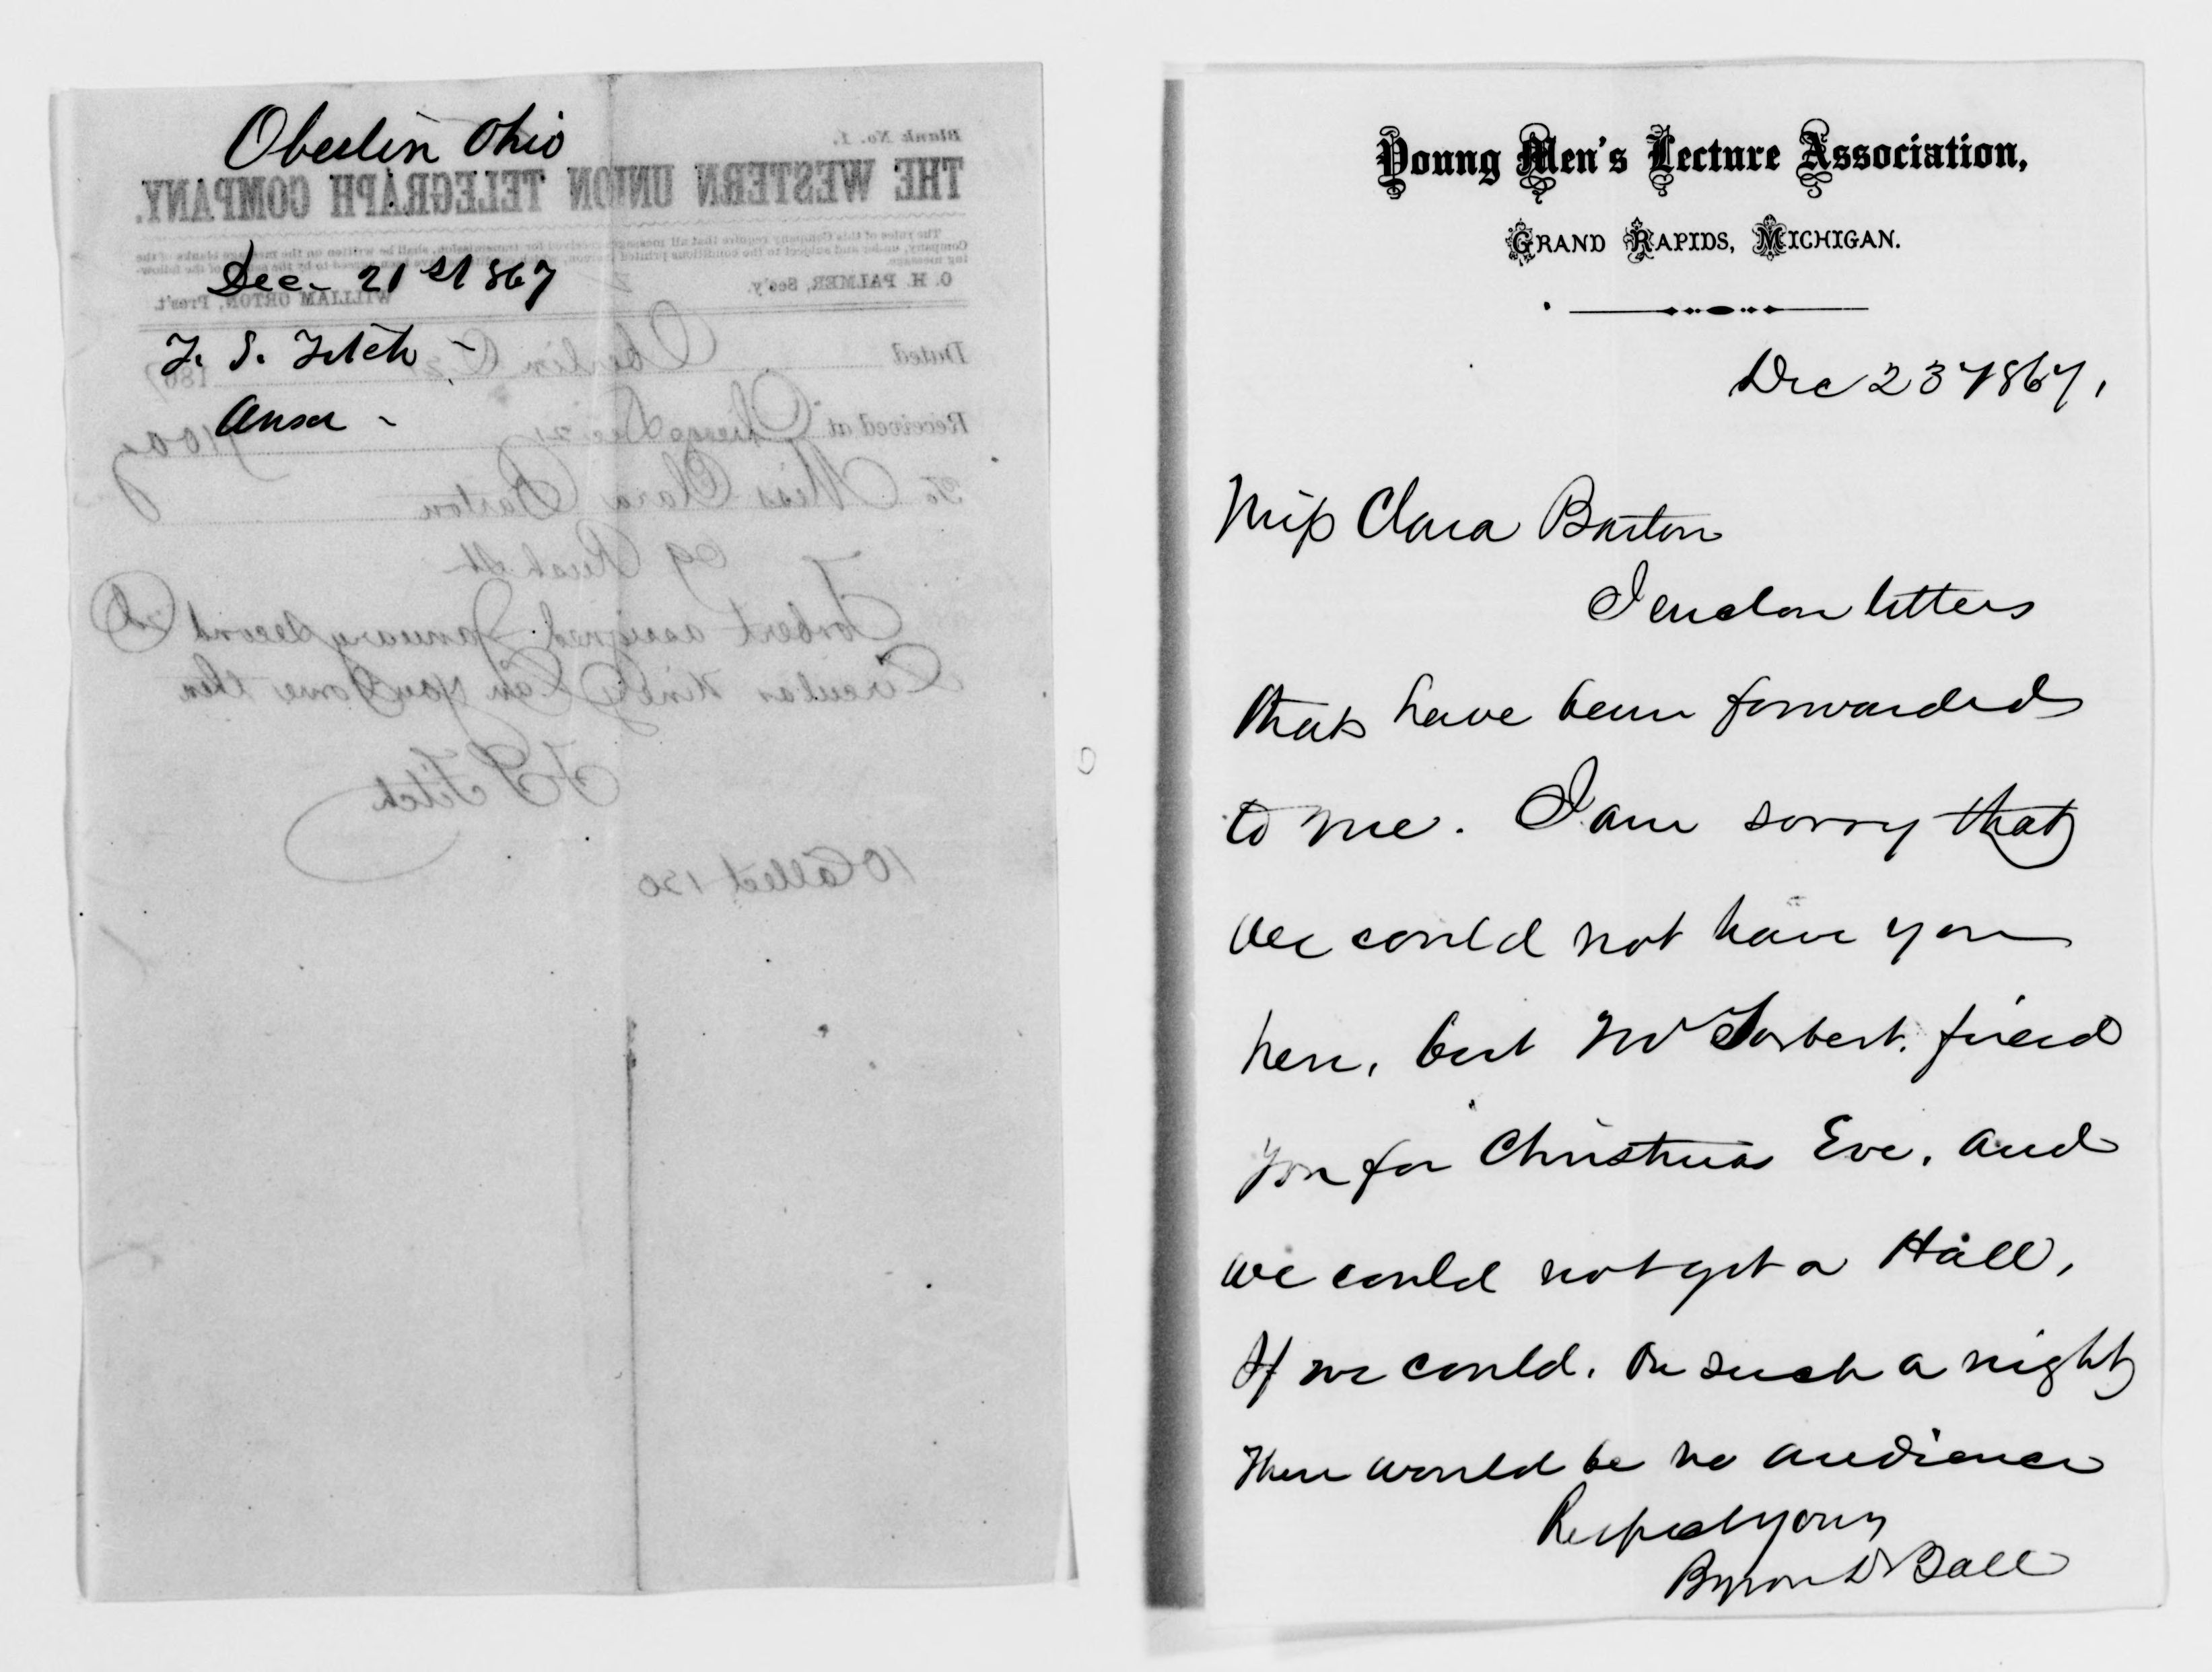 Oberlin Ohio
Dec- 21st 1867
F. S. Fitch -
Ansd -
Blank No. 1.
THE WESTERN UNION TELEGRAPH COMPANY.
The rules of this Company require that all messages received for transmission, shall be written on the message blanks of the
Company, under and subject to the conditions printed thereon,
ing message.
O. H. PALMER, Sec'y.
WILLIAM ORTON, Pres't.
Dated Oberlin O 1867
Received at Chicago Dec 21
To Miss Clara Barton
69 Rush St
Torbert assigned January Second
Circular Kindly Can You Come then
F S Fitch
10 Collect 150
Young Men's Lecture Association,
GRAND RAPIDS, MICHIGAN.
Dec 23 1867,
Miss Clara Barton
I enclose letters
that have been forwarded
to me. I am sorry that
we could not have you
here, but Mr Torbert. fixed
you for Christmas Eve, and
we could not get a Hall,
If we could. On such a night
there would be no audience
Respectyours
Byron D Ball